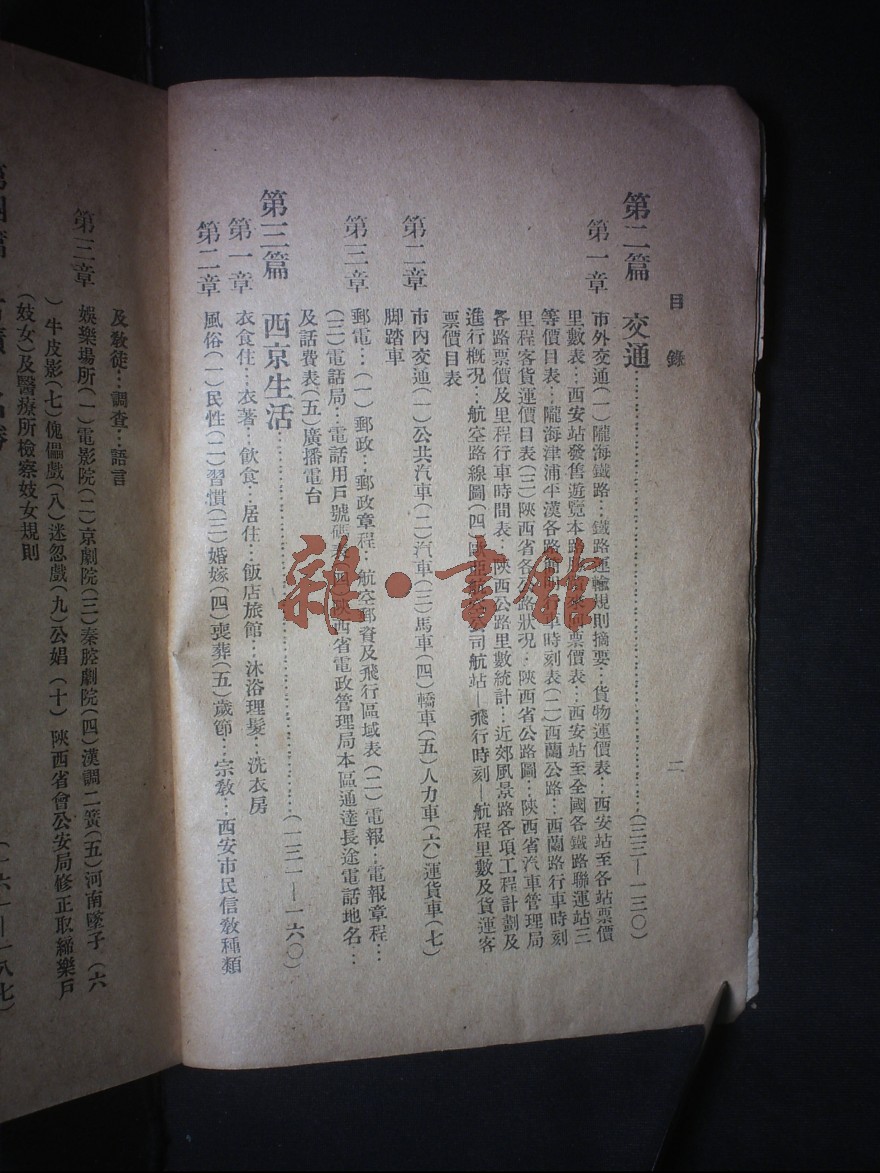 目錄
二
第二篇 交通……………………………(三三—一三〇)
第一章 市外交通(一)隴海鐵路…鐵路運輸規則摘要…貨物運價表…西安站至各站票價
里數表…西安站發售遊覽本路 來回票價表…西安站至全國各鐵路聯運站三
等價目表…隴海津浦平漢各路 行車時刻表(二)西蘭公路…西蘭路行車時刻
里程客貨運價目表(三)陝西省各公路狀況…陝西省公路圖…陝西省汽車管理局
各路票價及里程行車時間表…陝西公路里數統計…近郊風景路各項工程計劃及
進行概況…航空路線圖(四)歐亞 公司航站—飛行時刻—航程里數及貨運客
票價目表
第二章 市內交通(一)公共汽車(二)汽車(三)馬車(四)轎車(五)人力車(六)運貨車(七)
脚踏車
第三章 郵電…(一)郵政…郵政章程…航空郵資及飛行區域表(二)電報…電報章程…
(三)電話局…電話用戶號碼表(四)陝西省電政管理局本區通達長途電話地名…
及話費表(五)廣播電台
第三篇 西京生活……………………………(一三一—一六〇)
第一章 衣食住…衣著…飲食…居住…飯店旅館…沐浴理髮…洗衣房
第二章 風俗(一)民性(二)習慣(三)婚嫁(四)喪葬(五)歲節…宗教…西安市民信教種類
及教徒…調查…語言
第三章 娛樂場所(一)電影院(二)京劇院(三)秦腔劇院(四)漢調二簧(五)河南墜子(六
)牛皮影(七)傀儡戲(八)迷忽戲(九)公娼(十)陝西省會公安局修正取締樂戶
(妓女)及醫療所檢察妓女規則
第四篇 (一六一—一八七)
雜·書館